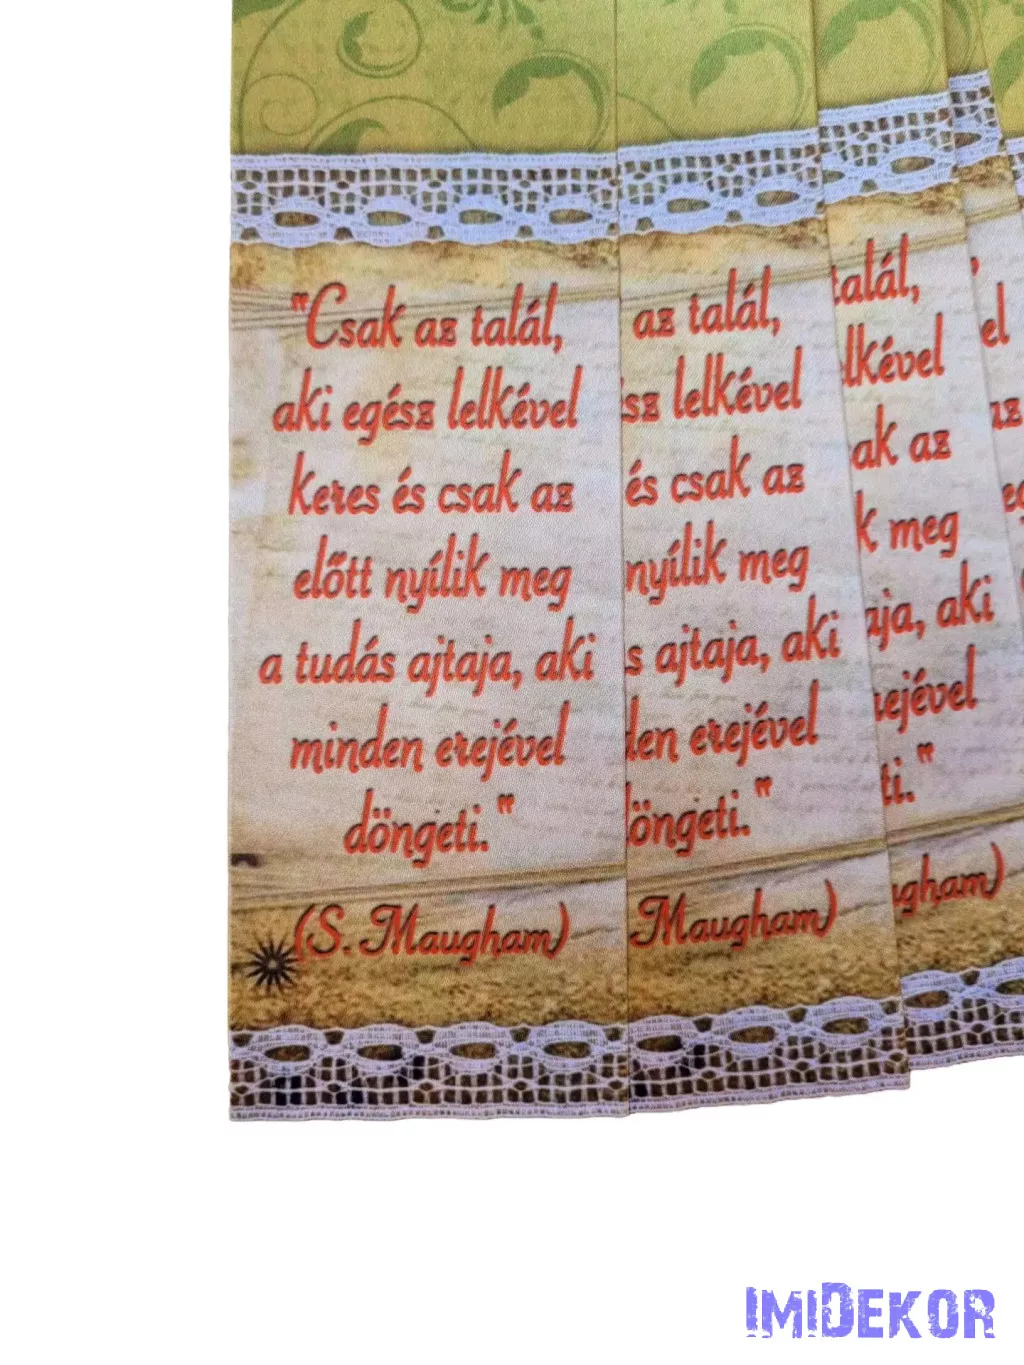 "Csak az talál,
aki egész lelkével
keres és csak az
előtt nyílik meg
a tudás ajtaja, aki
minden erejével
döngeti."
(S. Maugham)
az talál,
lelkével
és csak az
nyílik meg
ajtaja, aki
erejével
döngeti."
Maugham)
talál,
lkével
ak az
k meg
aja, aki
rejével
ti."
gham)
el
az
IMIDEKOR